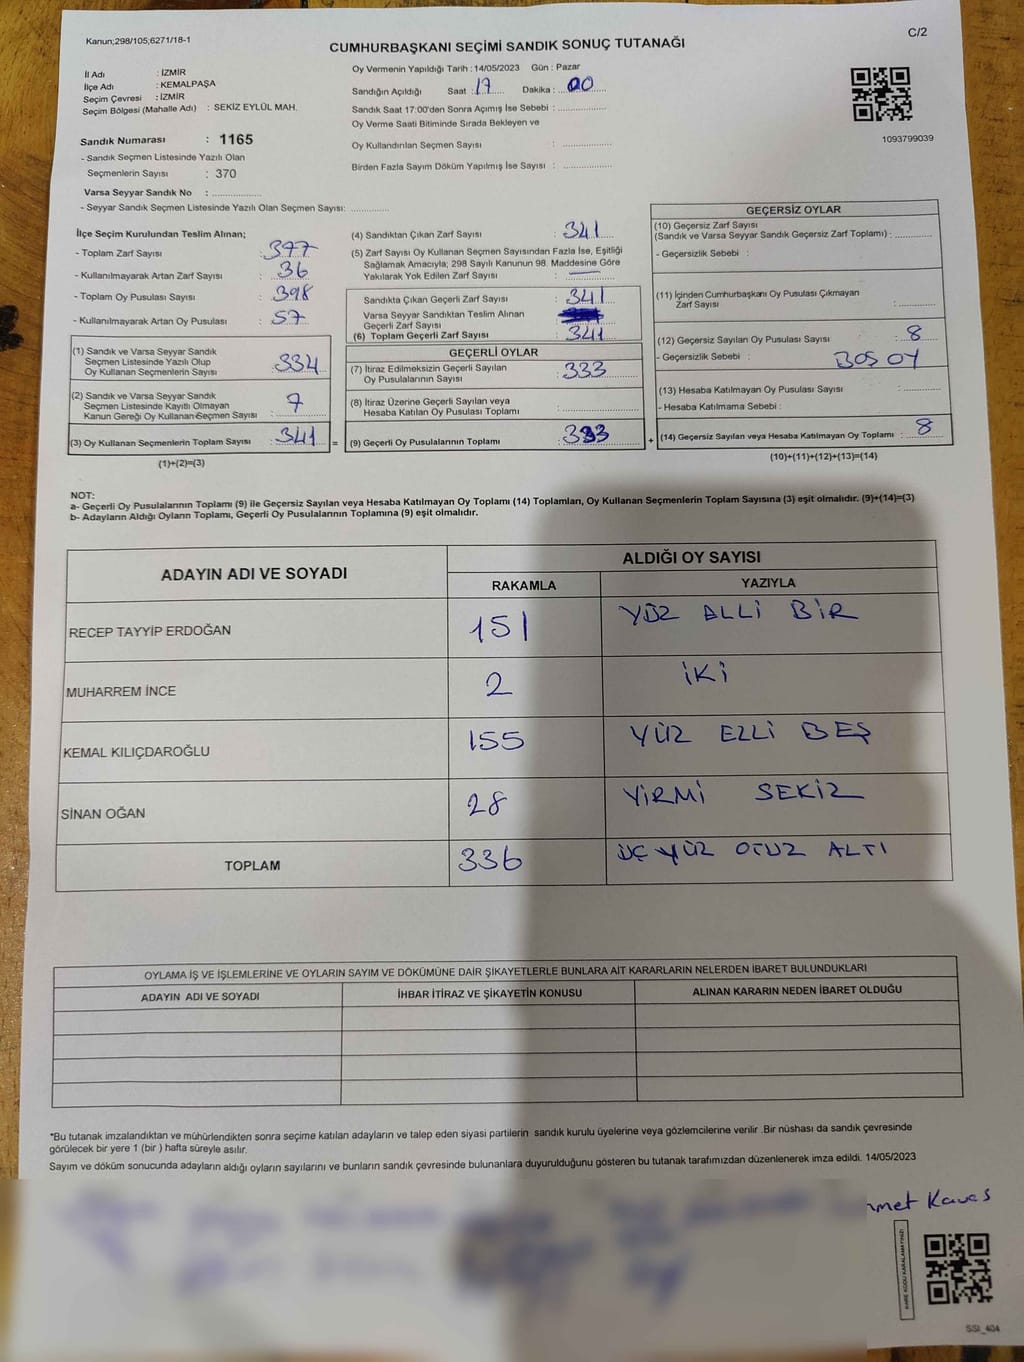 Kanun;298/105,6271/18-1
C/2
CUMHURBAŞKANI SEÇİMİ SANDIK SONUÇ TUTANAĞI
İl Adı : İZMİR
İlçe Adı : KEMALPAŞA
Seçim Çevresi : İZMİR
Seçim Bölgesi (Mahalle Adı) : SEKİZ EYLÜL MAH.
Sandık Numarası : 1165
- Sandık Seçmen Listesinde Yazılı Olan
Seçmenlerin Sayısı : 370
Varsa Seyyar Sandık No : ..............
- Seyyar Sandık Seçmen Listesinde Yazılı Olan Seçmen Sayısı: ............
Oy Vermenin Yapıldığı Tarih : 14/05/2023 Gün : Pazar
Sandığın Açıldığı Saat : 17 Dakika : 00
Sandık Saat 17:00'den Sonra Açımış İse Sebebi : ..............
Oy Verme Saati Bitiminde Sırada Bekleyen ve
Oy Kullandırılan Seçmen Sayısı : ..............
Birden Fazla Sayım Döküm Yapılmış İse Sayısı : ..............
1093799039
İlçe Seçim Kurulundan Teslim Alınan;
- Toplam Zarf Sayısı : 377
- Kullanılmayarak Artan Zarf Sayısı : 36
- Toplam Oy Pusulası Sayısı : 398
- Kullanılmayarak Artan Oy Pusulası : 57
(1) Sandık ve Varsa Seyyar Sandık
Seçmen Listesinde Yazılı Olup
Oy Kullanan Seçmenlerin Sayısı : 334
(2) Sandık ve Varsa Seyyar Sandık
Seçmen Listesinde Kayıtlı Olmayan
Kanun Gereği Oy Kullanan Seçmen Sayısı : 7
(3) Oy Kullanan Seçmenlerin Toplam Sayısı : 341 =
(1)+(2)=(3)
(4) Sandıktan Çıkan Zarf Sayısı : 341
(5) Zarf Sayısı Oy Kullanan Seçmen Sayısından Fazla İse, Eşitliği
Sağlamak Amacıyla; 298 Sayılı Kanunun 98. Maddesine Göre
Yakılarak Yok Edilen Zarf Sayısı :
Sandıkta Çıkan Geçerli Zarf Sayısı : 341
Varsa Seyyar Sandıktan Teslim Alınan
Geçerli Zarf Sayısı
(6) Toplam Geçerli Zarf Sayısı : 341
GEÇERLİ OYLAR
(7) İtiraz Edilmeksizin Geçerli Sayılan
Oy Pusulalarının Sayısı : 333
(8) İtiraz Üzerine Geçerli Sayılan veya
Hesaba Katılan Oy Pusulası Toplamı : ..............
(9) Geçerli Oy Pusulalarının Toplamı : 333 +
GEÇERSİZ OYLAR
(10) Geçersiz Zarf Sayısı
(Sandık ve Varsa Seyyar Sandık Geçersiz Zarf Toplamı) : ............
- Geçersizlik Sebebi :
(11) İçinden Cumhurbaşkanı Oy Pusulası Çıkmayan
Zarf Sayısı : ............
(12) Geçersiz Sayılan Oy Pusulası Sayısı : 8
- Geçersizlik Sebebi : BOŞ OY
(13) Hesaba Katılmayan Oy Pusulası Sayısı : ............
- Hesaba Katılmama Sebebi :
(14) Geçersiz Sayılan veya Hesaba Katılmayan Oy Toplamı : 8
(10)+(11)+(12)+(13)=(14)
NOT:
a- Geçerli Oy Pusulalarının Toplamı (9) ile Geçersiz Sayılan veya Hesaba Katılmayan Oy Toplamı (14) Toplamları, Oy Kullanan Seçmenlerin Toplam Sayısına (3) eşit olmalıdır. (9)+(14)=(3)
b- Adayların Aldığı Oyların Toplamı, Geçerli Oy Pusulalarının Toplamına (9) eşit olmalıdır.
ADAYIN ADI VE SOYADI
ALDIĞI OY SAYISI
RAKAMLA YAZIYLA
RECEP TAYYİP ERDOĞAN 151 YÜZ ALLİ BİR
MUHARREM İNCE 2 İKİ
KEMAL KILIÇDAROĞLU 155 YÜZ ELLİ BEŞ
SİNAN OĞAN 28 YİRMİ SEKİZ
TOPLAM 336 ÜÇ YÜZ OTUZ ALTI
OYLAMA İŞ VE İŞLEMLERİNE VE OYLARIN SAYIM VE DÖKÜMÜNE DAİR ŞİKAYETLERLE BUNLARA AİT KARARLARIN NELERDEN İBARET BULUNDUKLARI
ADAYIN ADI VE SOYADI İHBAR İTİRAZ VE ŞİKAYETİN KONUSU ALINAN KARARIN NEDEN İBARET OLDUĞU
*Bu tutanak imzalandıktan ve mühürlendikten sonra seçime katılan adayların ve talep eden siyasi partilerin sandık kurulu üyelerine veya gözlemcilerine verilir .Bir nüshası da sandık çevresinde
görülecek bir yere 1 (bir ) hafta süreyle asılır.
Sayım ve döküm sonucunda adayların aldığı oyların sayılarını ve bunların sandık çevresinde bulunanlara duyurulduğunu gösteren bu tutanak tarafımızdan düzenlenerek imza edildi. 14/05/2023
hmet Kavas
KARE KODU KARALAMAYINIZ!
SSI_404